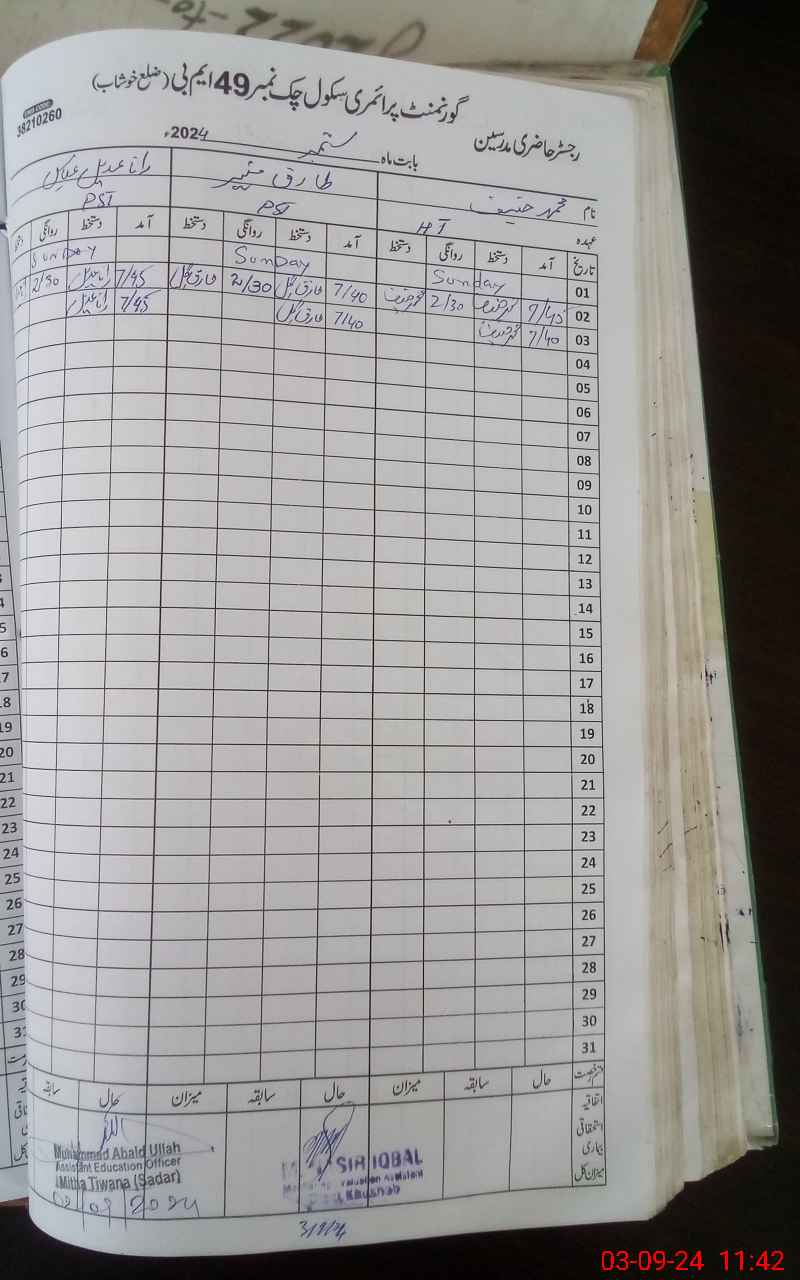 گورنمنٹ پرائمری سکول چک نمبر 49 ایم بی (ضلع خوشاب)
EMIS CODE:
38210260
رجسٹر حاضری مدرسین
بابت ماہ ستمبر 2024ء
نام محمد حنیف طارق منیر رانا عدیل عباس
عہدہ HT PST PST
تاریخ آمد دستخط روانگی دستخط آمد دستخط روانگی دستخط آمد دستخط روانگی
01 Sunday Sunday Sunday
02 7/45 محمد حنیف 2/30 محمد حنیف 7/40 2/30 7/45 رانا عدیل 2/30
03 7/40 محمد حنیف 7/40 7/45 رانا عدیل
04
05
06
07
08
09
10
11
12
13
14
15
16
17
18
19
20
21
22
23
24
25
26
27
28
29
30
31
قسم رخصت حال سابقہ میزان حال سابقہ میزان حال سابقہ
اتفاقیہ
استحقاقی
بیماری
میزان کل
Muhammad Abaid Ullah
Assistant Education Officer
Mitha Tiwana (Sadar)
02/09/2024
SIR IQBAL
Khushab
3/9/24
03-09-24 11:42